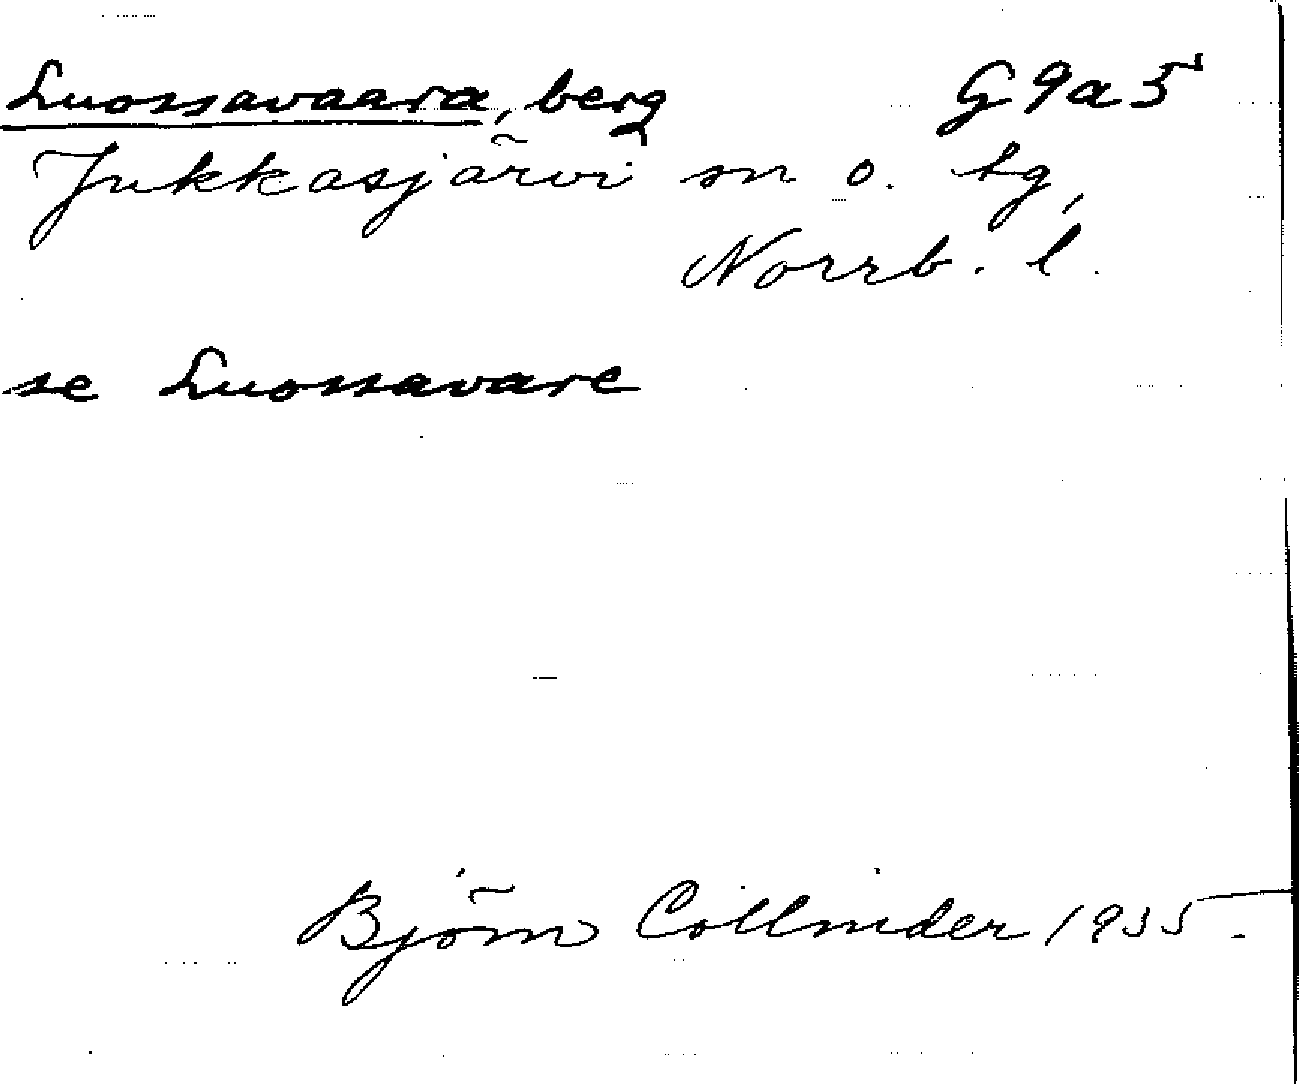 Luossavaara, berg G9a5
Jukkasjärvi sn o. tg,
Norrb. l.
se Luossavare
Björn Collinder 1955.